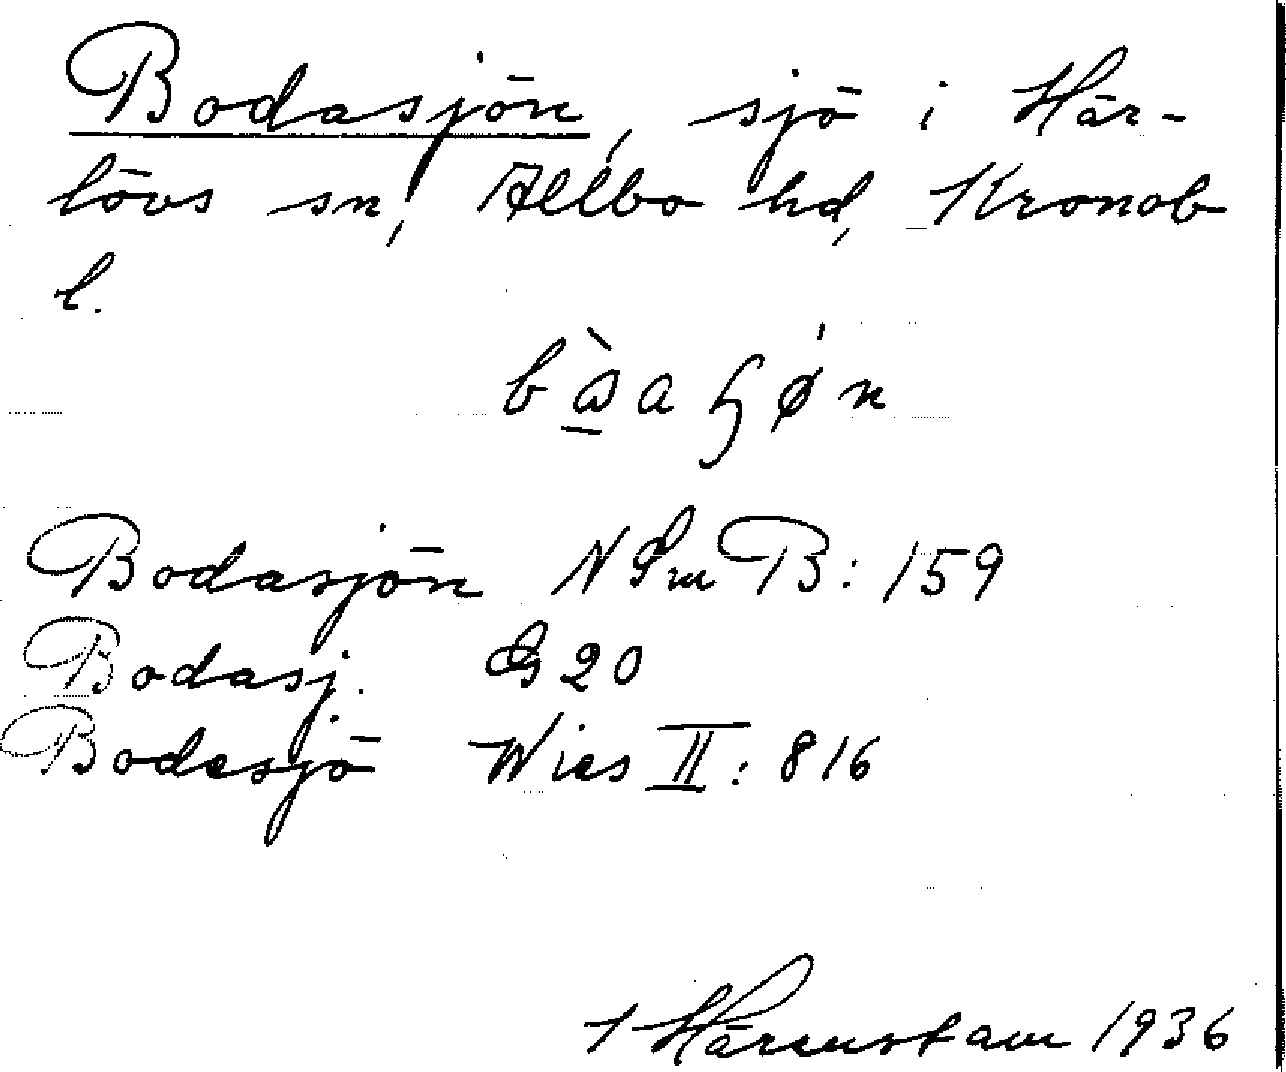 Bodasjön, sjö i Här-
lövs sn, Allbo hd, Kronob
l.
Bodasjön NSmB: 159
Bodasj. G 20
Bodasjö Wies II: 816
1936